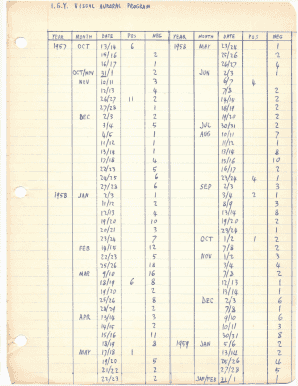 I.G.Y. VISUAL AURORAL PROGRAM
YEAR MONTH DATE POS NEG YEAR MONTH DATE POS NEG
1957 OCT 13/14 6 1958 MAY 23/24 1
14/16 2 25/26 2
16/17 1 26/27 4
OCT/NOV 31/1 2 JUN 2/3 1
NOV 10/11 3 6/7 4
12/13 4 7/8 2
26/27 11 2 14/15 2
27/28 2 18/19 2
DEC 2/3 2
3/4 5 JUL 30/31 2
4/5 1 AUG 10/11 7
11/12 1 11/12 1
13/14 1 8
17/18 4 15/16 10
5
24/25 6 23/24 4 1
27/28 6 SEP 2/3 3
1958 JAN 2/3 1 3/4 2 1
11/12 2 8/9 3
12/13 4 13/14 8
19/20 10 19/20 2
20/21 3 23/24 1
23/24 7 OCT 1/2 1 2
FEB 14/15 12 7/8 2
22/23 5 NOV 1/2 3
25/26 18 3/4 4
MAR 9/10 16 7/8 2
18/19 6 8 12/13 1
19/20 2 13/14 1
25/26 8 DEC 2/3 6
26/27 2 7/8 3
APR 13/14 3 9/10 6
14/15 2 10/11 3
15/16 11 30/31 8
16/17 3 1959 JAN 5/6 2
MAY 17/18 1 13/14 2
19/20 5 25/26 4
21/22 2 27/28 5
22/23 2 JAN/FEB 31/1 1